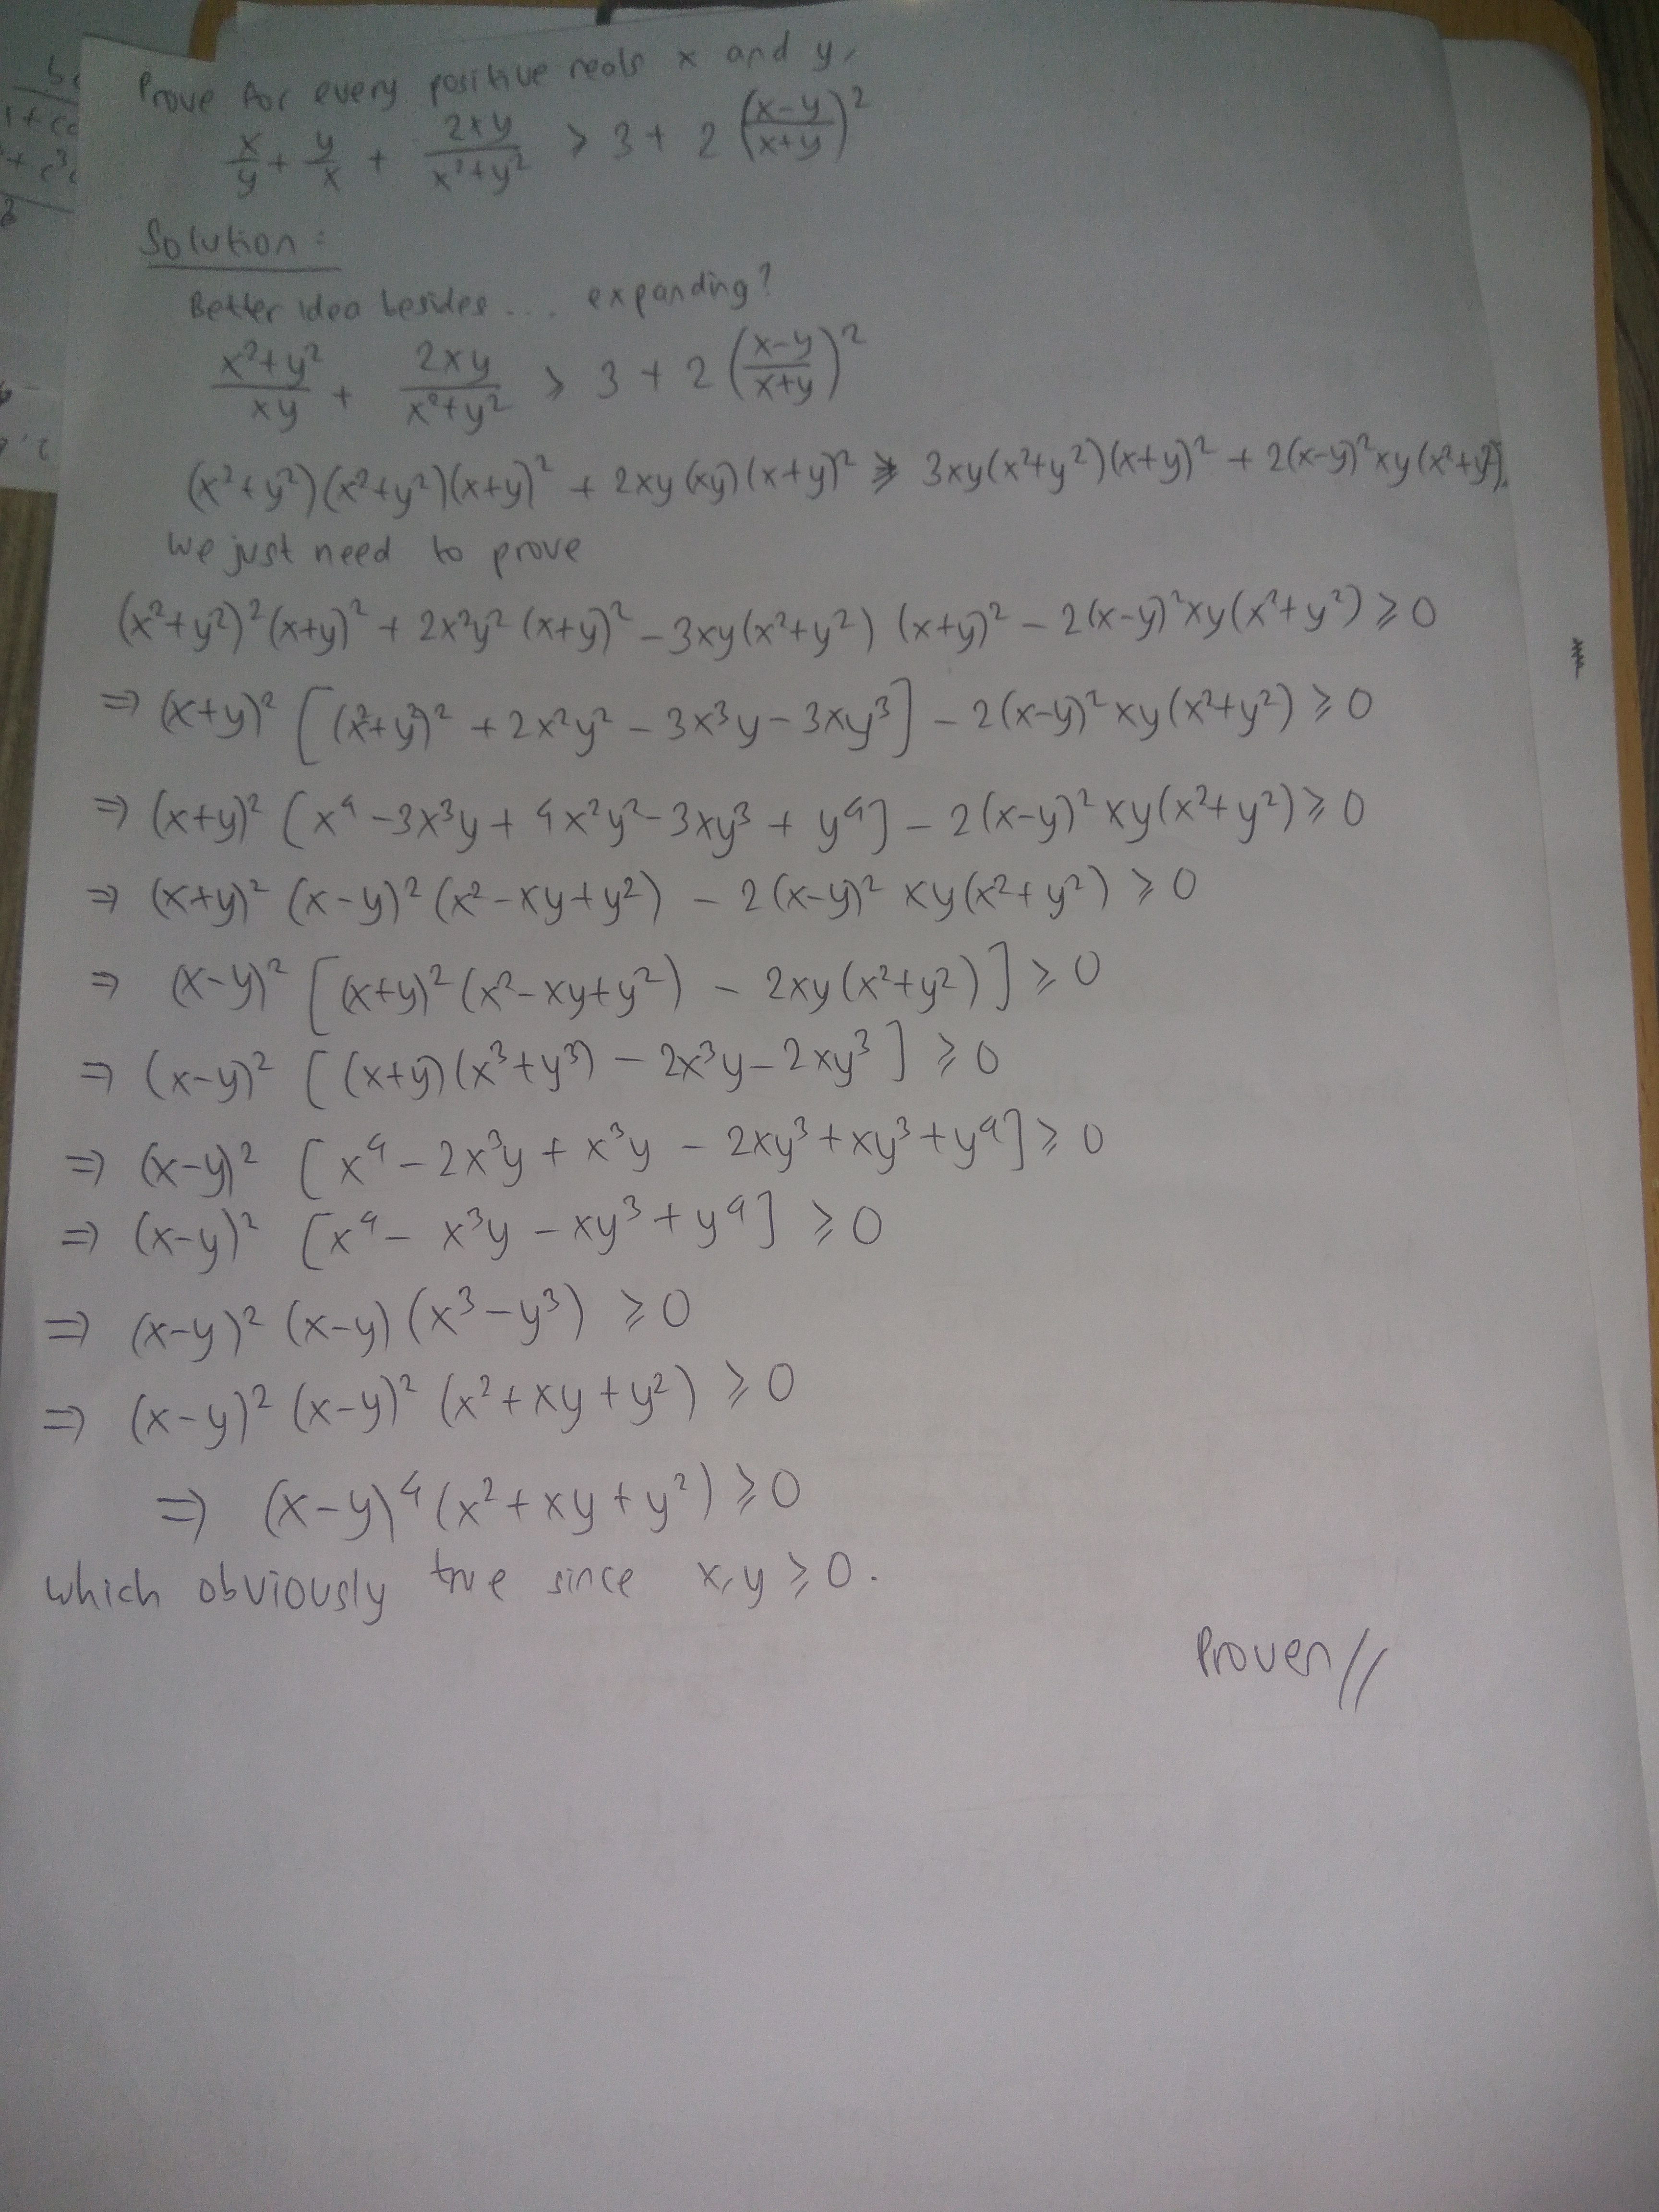 Prove for every positive reals x and y,
x/y + y/x + 2xy/(x²+y²) ≥ 3 + 2 ((x-y)/(x+y))²
Solution:
Better idea besides ... expanding?
(x²+y²)/xy + 2xy/(x²+y²) ≥ 3 + 2 ((x-y)/(x+y))²
(x²+y²)(x²+y²)(x+y)² + 2xy(xy)(x+y)² ≥ 3xy(x²+y²)(x+y)² + 2(x-y)²xy(x²+y²).
We just need to prove
(x²+y²)²(x+y)² + 2x²y²(x+y)² - 3xy(x²+y²)(x+y)² - 2(x-y)²xy(x²+y²) ≥ 0
⇒ (x+y)² [(x²+y²)² + 2x²y² - 3x³y - 3xy³] - 2(x-y)² xy(x²+y²) ≥ 0
⇒ (x+y)² [x⁴ - 3x³y + 4x²y² - 3xy³ + y⁴] - 2(x-y)² xy(x²+y²) ≥ 0
⇒ (x+y)² (x-y)² (x²-xy+y²) - 2(x-y)² xy(x²+y²) ≥ 0
⇒ (x-y)² [(x+y)²(x²-xy+y²) - 2xy(x²+y²)] ≥ 0
⇒ (x-y)² [(x+y)(x³+y³) - 2x³y - 2xy³] ≥ 0
⇒ (x-y)² [x⁴ - 2x³y + x³y - 2xy³ + xy³ + y⁴] ≥ 0
⇒ (x-y)² [x⁴ - x³y - xy³ + y⁴] ≥ 0
⇒ (x-y)² (x-y) (x³-y³) ≥ 0
⇒ (x-y)² (x-y)² (x²+xy+y²) ≥ 0
⇒ (x-y)⁴ (x²+xy+y²) ≥ 0
which obviously true since x,y ≥ 0.
Proven //